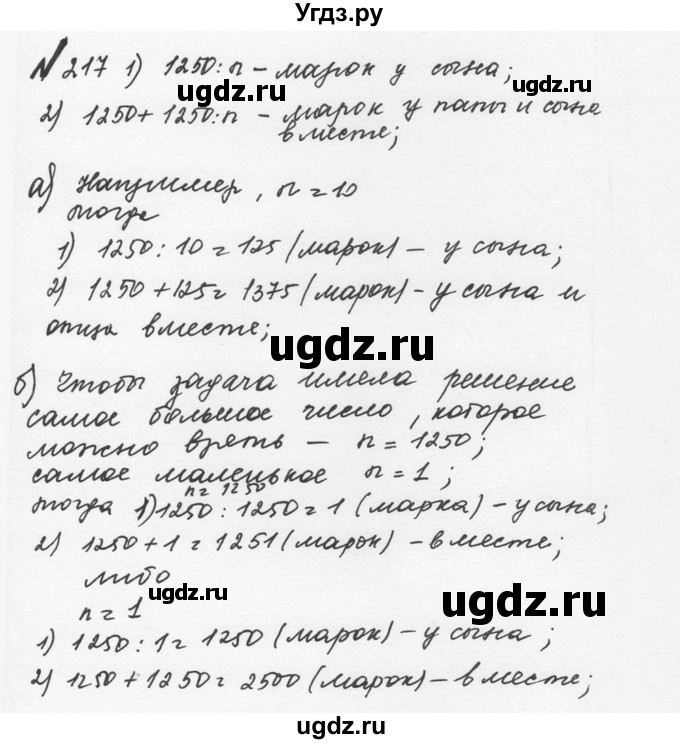 Угдз.ру
№ 217 1) 1250:n - марок у сына;
ugdz.ru ugdz.ru
2) 1250 + 1250:n - марок у папы и сына
вместе;
а) Например, n = 10
тогда
1) 1250 : 10 = 125 (марок) - у сына;
2) 1250 + 125 = 1375 (марок) - у сына и
отца вместе;
ugdz.ru
б) Чтобы задача имела решение
самое большое число, которое
можно взять - n = 1250;
самое маленькое n = 1;
n = 1250
тогда 1) 1250 : 1250 = 1 (марка) - у сына;
2) 1250 + 1 = 1251 (марок) - вместе;
либо
ugdz.ru ugdz.ru
n = 1
1) 1250 : 1 = 1250 (марок) - у сына;
2) 1250 + 1250 = 2500 (марок) - вместе;
ugdz.ru